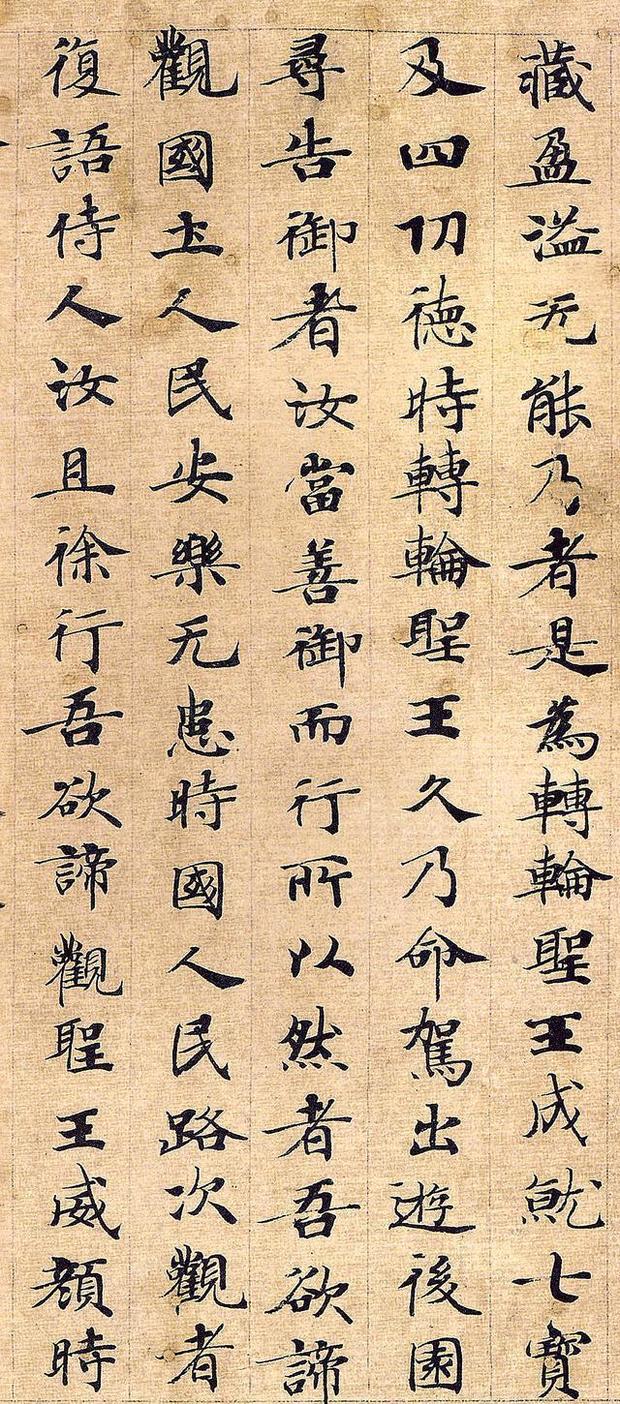 藏盈溢无能乃者是為轉輪聖王成就七寶
及四功德時轉輪聖王久乃命駕出遊後園
尋告御者汝當善御而行所以然者吾欲諦
觀國土人民安樂无患時國人民路次觀者
復語侍人汝且徐行吾欲諦觀聖王威顏時